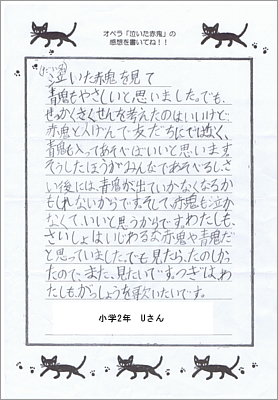 オペラ「泣いた赤鬼」の
感想を書いてね！！
泣いた赤鬼を見て
青鬼もやさしいと思いました。でも、
せっかくさくせんを考えたのはいいけど、
赤鬼とくけんで友だちにではなく、
青鬼も入ってあそべばいいと思います。
そうしたほうがみんなであそべるし、さ
い後には、青鬼が出ていかなくなるか
もしれないからです。そして、赤鬼も泣か
なくて、いいと思うからです。わたしも、
さいしょはいじわるな赤鬼や青鬼だ
と思っていました。でも見たら、たのしかっ
たので、また、見たいです。つぎは、わ
たしも、がっしょうを歌いたいです。
小学2年　Uさん